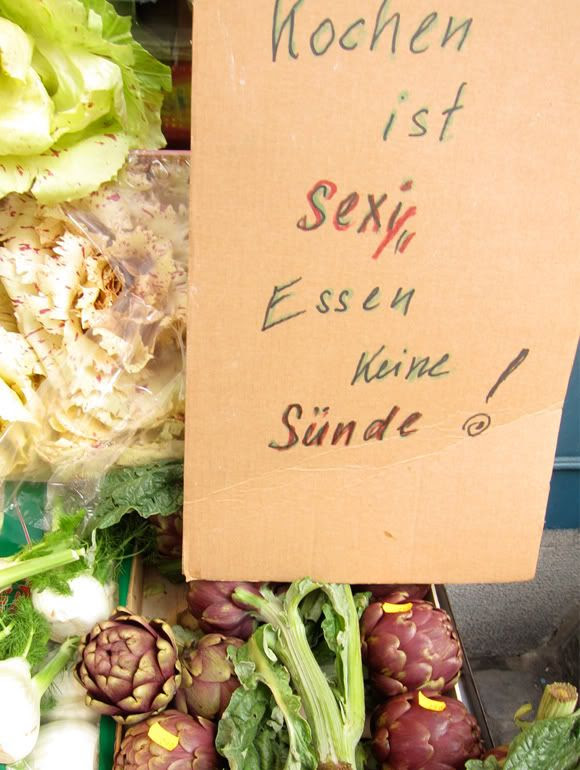 Kochen
ist
sexy,,
Essen
keine
Sünde!